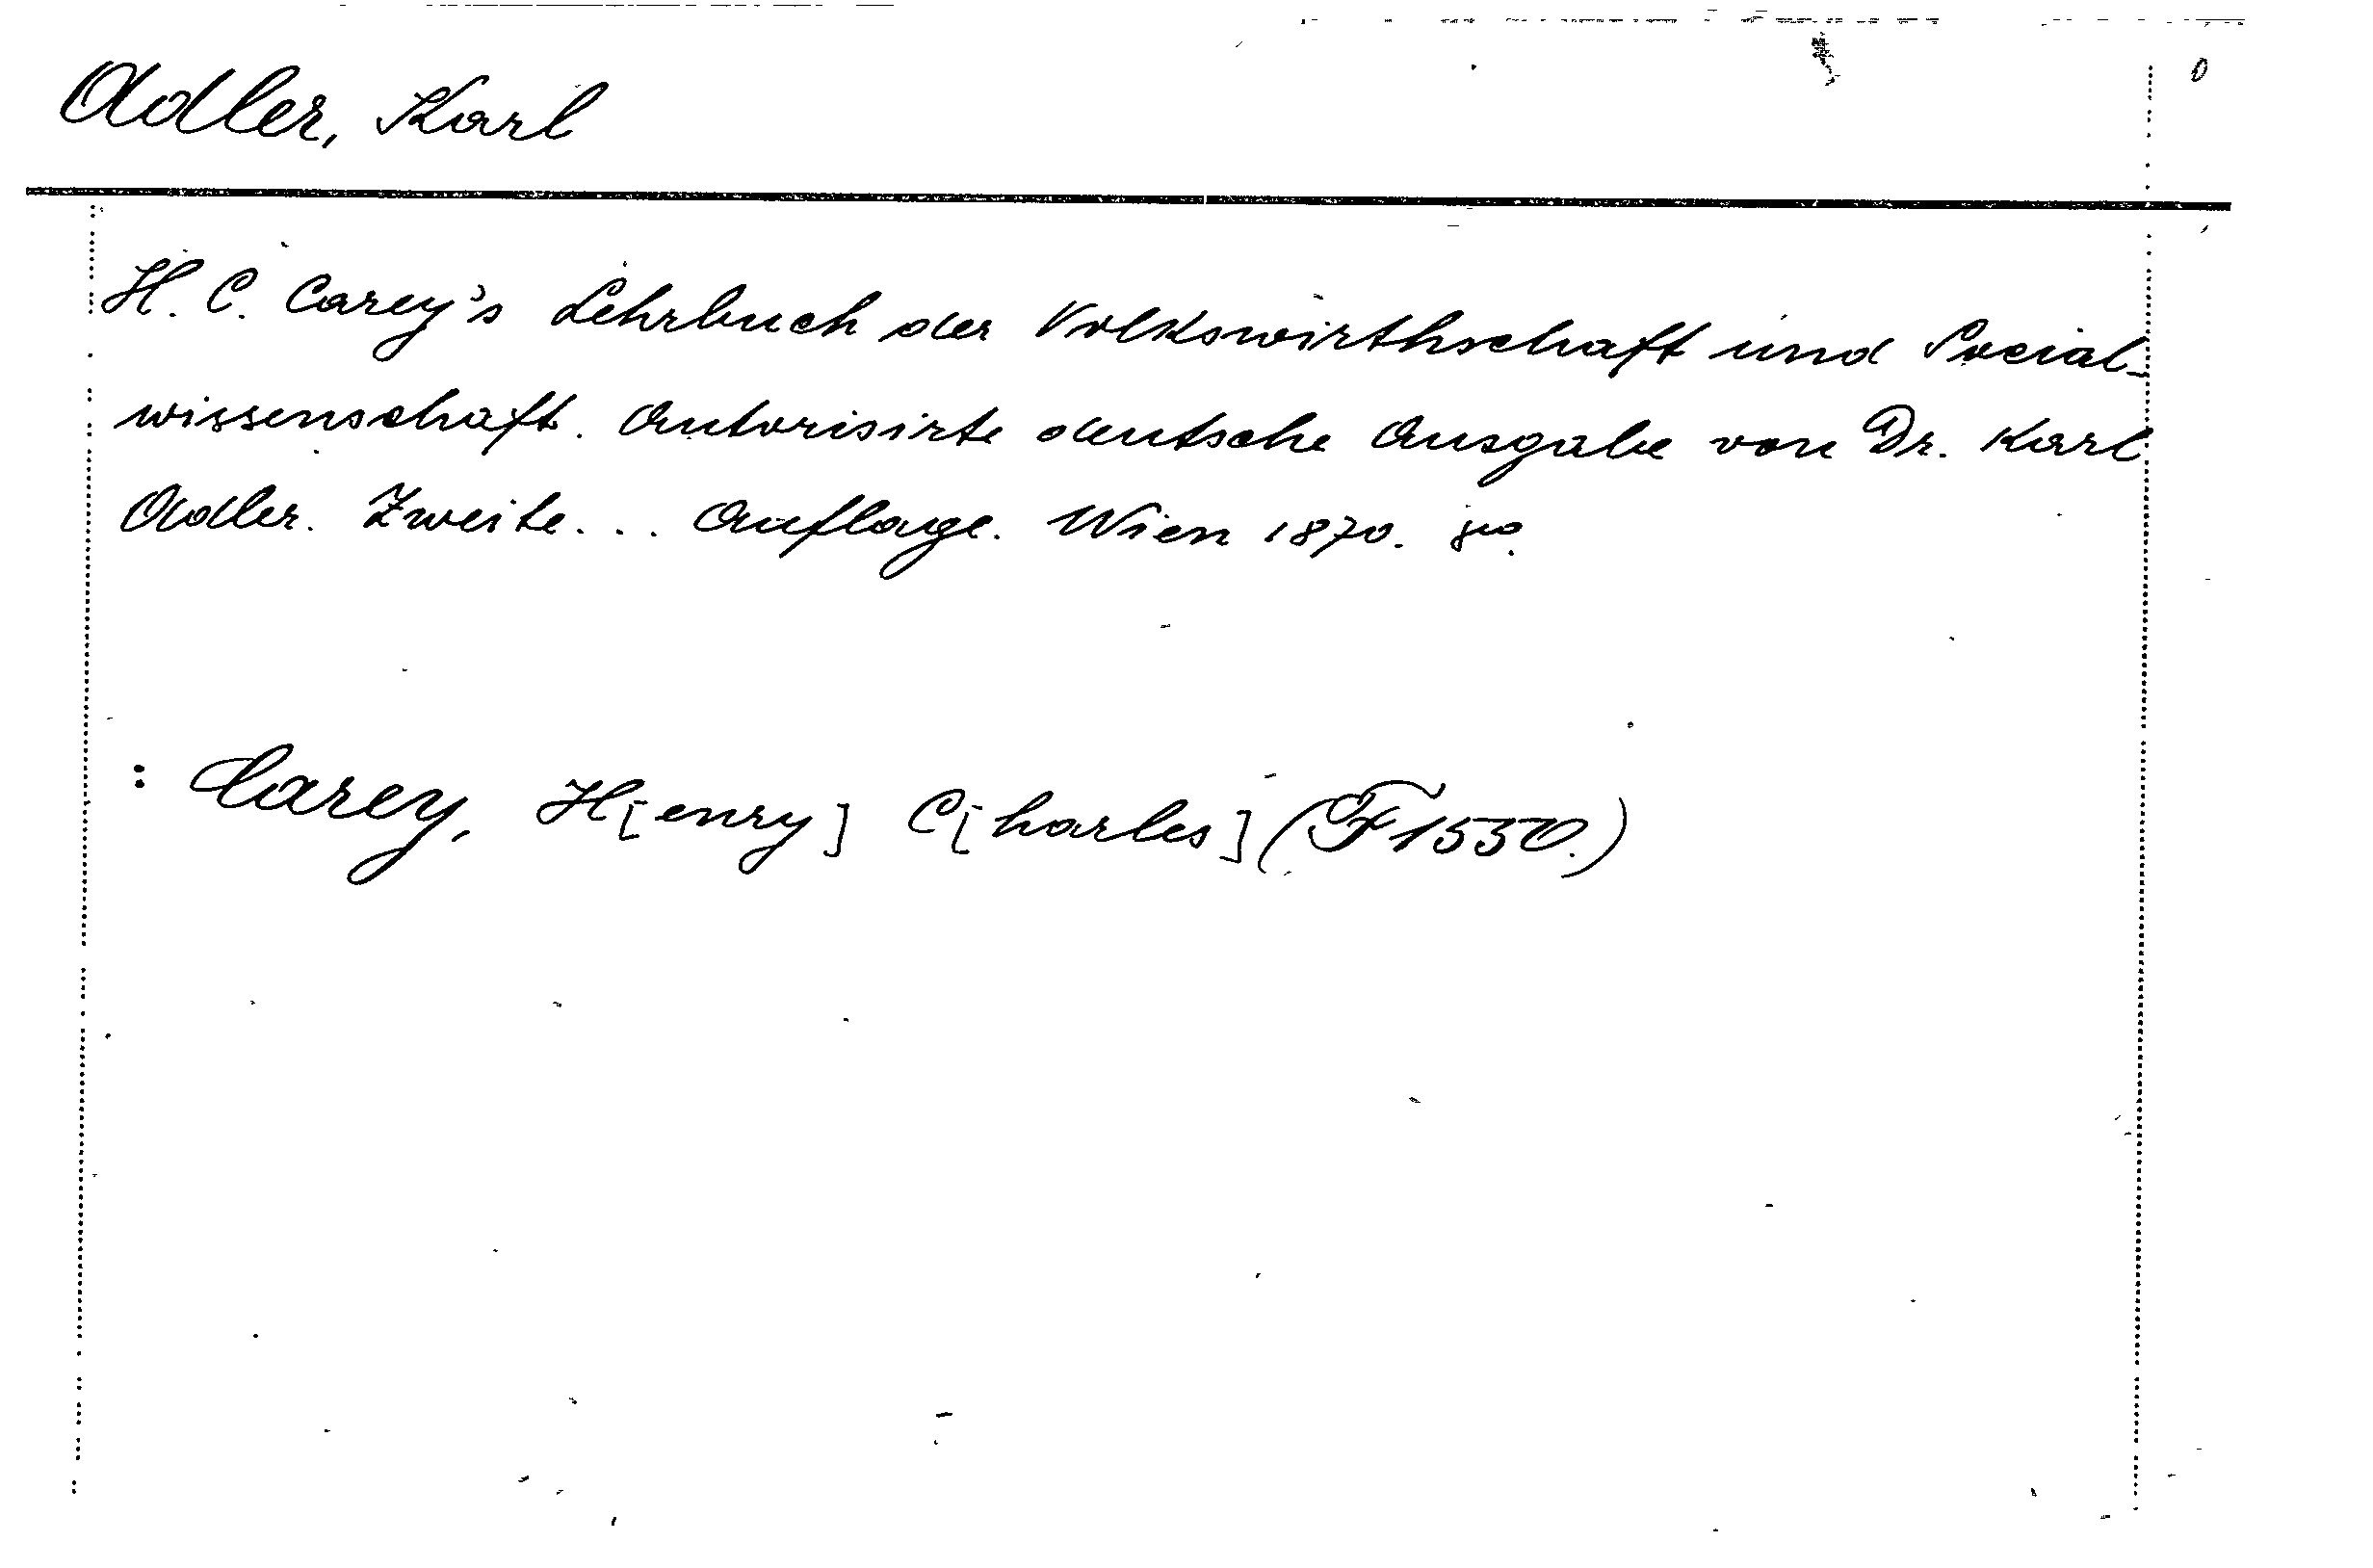 Adler, Karl
H. C. Carey's Lehrbuch der Volkswirthschaft und Social-
wissenschaft. Autorisirte deutsche Ausgabe von Dr. Karl
Adler. Zweite... Auflage. Wien 1870. 8vo.
: Carey, H[enry] C[harles] (F 1550.)